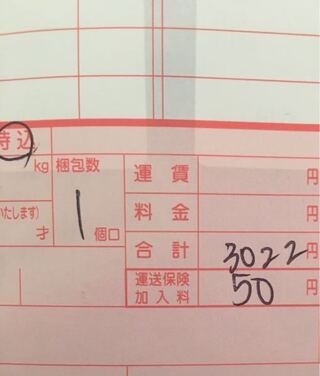 持込
kg 梱包数
いたします)
才 1 個口
運賃 円
料金 円
合計 3022円
運送保険
加入料 50 円